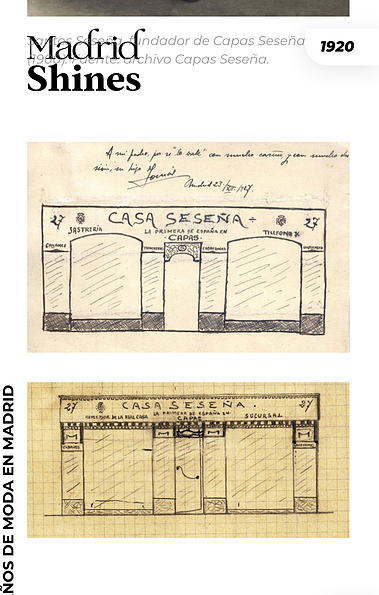 Santos Seseña, fundador de Capas Seseña
(1900). Fuente: archivo Capas Seseña.
Madrid
Shines
1920
A mi padre, por si "le vale" con mucho cariño y con mucho de
su hijo
Madrid 23/XII/1927.
27 CASA SESEÑA 27
SASTRERÍA LA PRIMERA DE ESPAÑA EN TELEFONO
CAPAS
27 CASA SESEÑA. 27
PROVEEDOR DE LA REAL CASA LA PRIMERA DE ESPAÑA EN SUCURSAL
CAPAS
ÑOS DE MODA EN MADRID